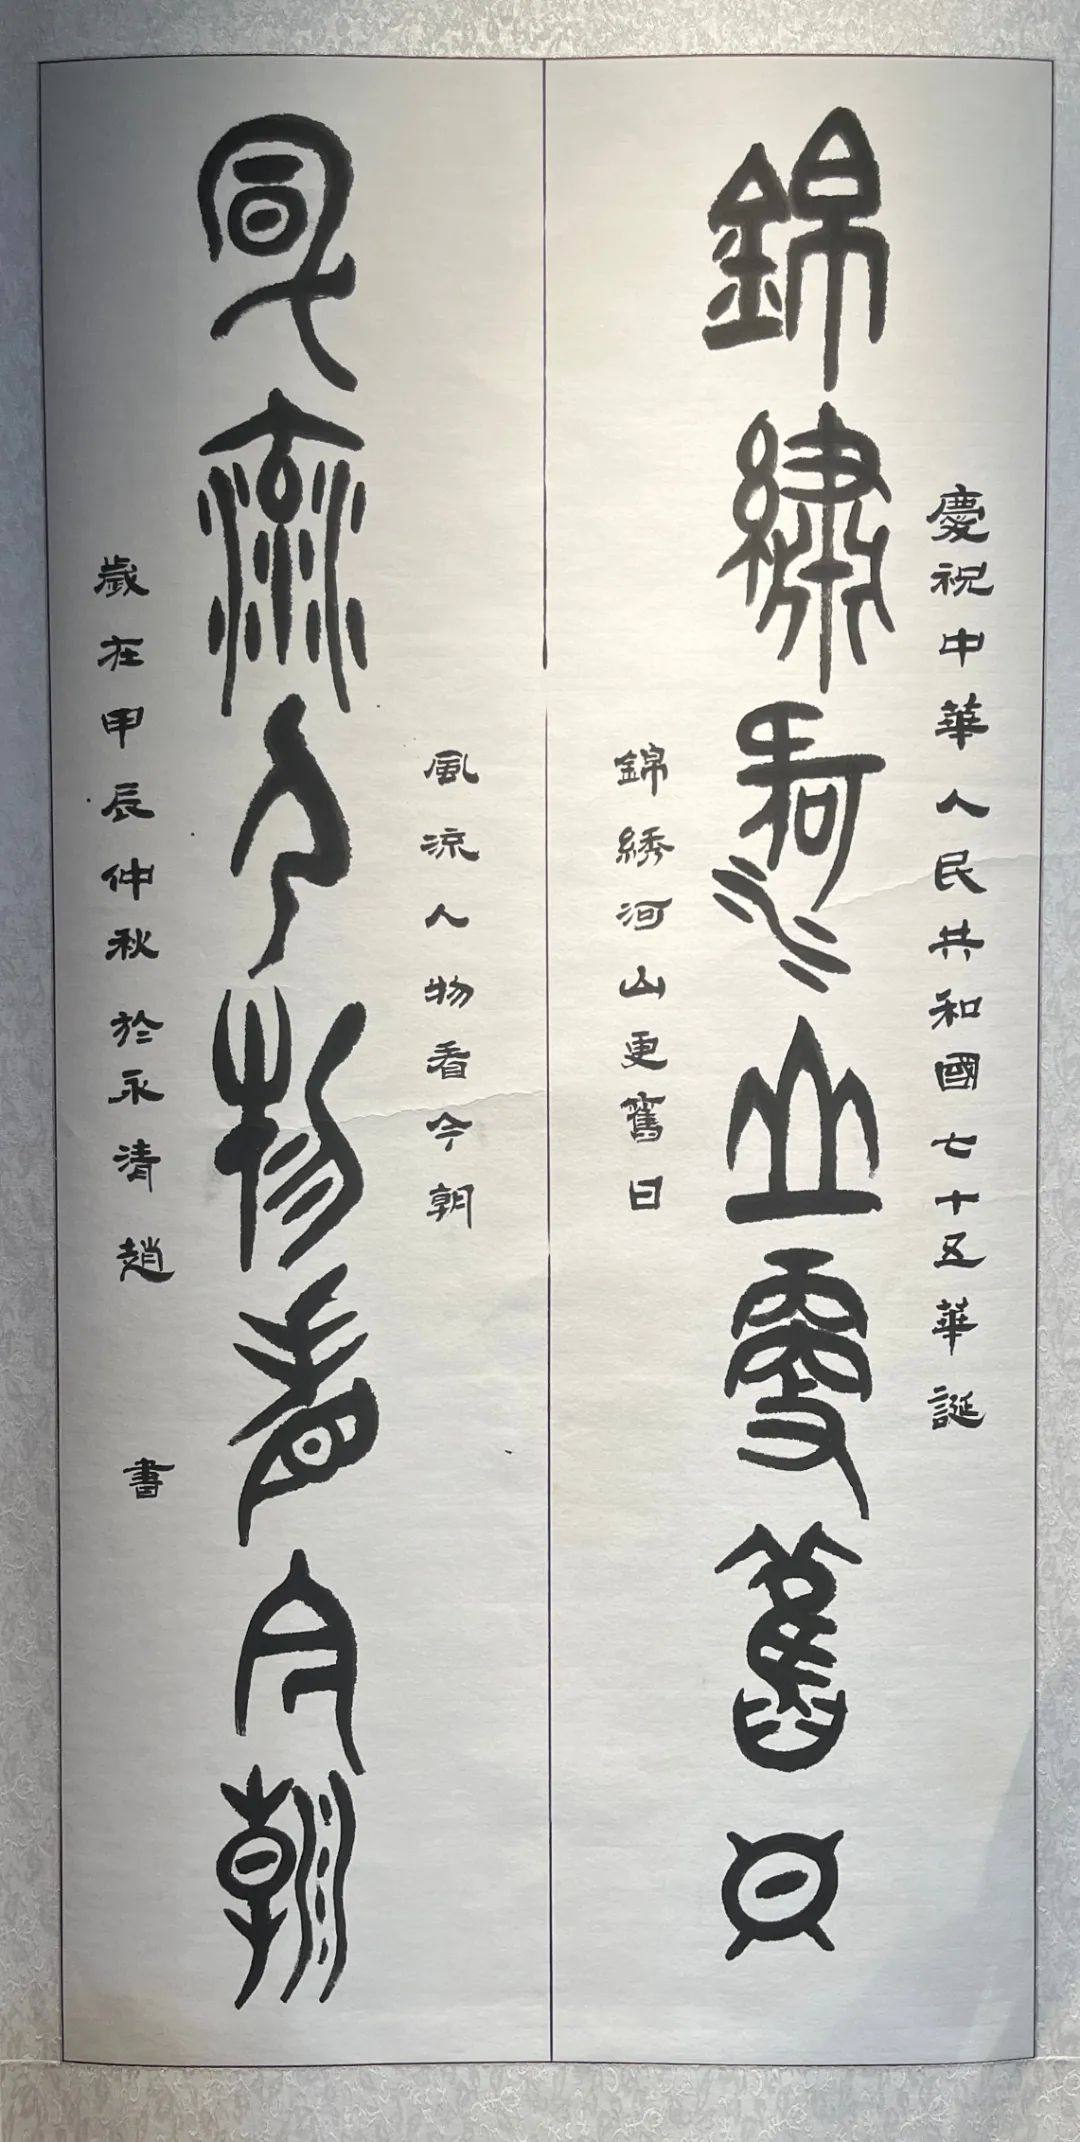 慶祝中華人民共和國七十五華誕
錦繡河山更舊日
錦綉河山更舊日
風流人物看今朝
風流人物看今朝
歲在甲辰仲秋於永清趙 書